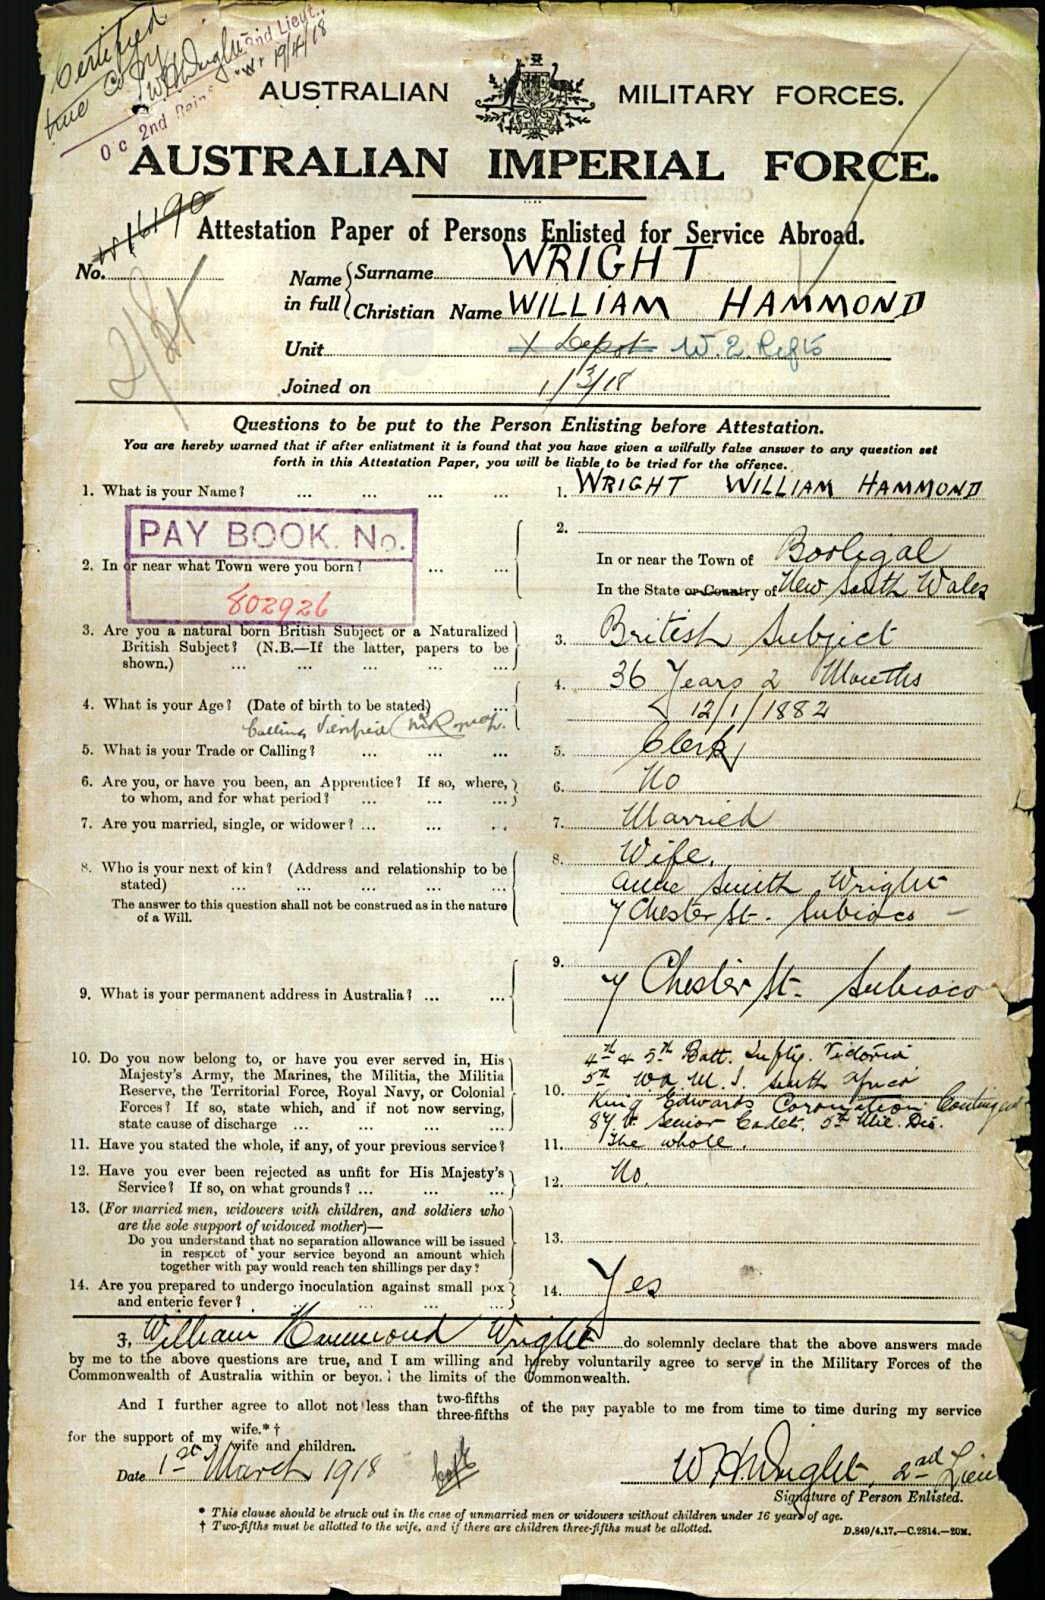 Certified
true Copy
WHWright 2nd Lieut.
O C 2nd Rein "W" 19/4/18
AUSTRALIAN MILITARY FORCES.
AUSTRALIAN IMPERIAL FORCE.
Attestation Paper of Persons Enlisted for Service Abroad.
No.
Name in full { Surname WRIGHT
Christian Name WILLIAM HAMMOND
Unit X Depot W. 2 Refts
Joined on 1/3/18
Questions to be put to the Person Enlisting before Attestation.
You are hereby warned that if after enlistment it is found that you have given a wilfully false answer to any question set
forth in this Attestation Paper, you will be liable to be tried for the offence.
1. What is your Name? ... ... ... ... 1. WRIGHT WILLIAM HAMMOND
PAY BOOK. No.
802926
2. In or near what Town were you born? ... ... 2.
In or near the Town of Booligal
In the State or Country of New South Wales
3. Are you a natural born British Subject or a Naturalized
British Subject? (N.B.—If the latter, papers to be
shown.) ... ... ... ... 3. British Subject
4. What is your Age? (Date of birth to be stated) ... 4. 36 Years 2 Months
12/1/1882
Calling Verified
5. What is your Trade or Calling? ... ... ... 5. Clerk
6. Are you, or have you been, an Apprentice? If so, where,
to whom, and for what period? ... ... ... 6. No
7. Are you married, single, or widower? ... ... ... 7. Married
8. Who is your next of kin? (Address and relationship to be
stated) ... ... ... ... ...
The answer to this question shall not be construed as in the nature
of a Will.
8. Wife,
Anne Smith Wright
7 Chester St. Subiaco
9. What is your permanent address in Australia? ... ... 9.
7 Chester St. Subiaco
10. Do you now belong to, or have you ever served in, His
Majesty's Army, the Marines, the Militia, the Militia
Reserve, the Territorial Force, Royal Navy, or Colonial
Forces? If so, state which, and if not now serving,
state cause of discharge ... ... ... ...
10. 4th & 5th Batt. Infty. Victoria
5th W.A. M. I. South Africa
King Edwards Coronation Contingent
87 Senior Cadets. 5th Mil. Dis.
11. Have you stated the whole, if any, of your previous service? 11. The whole.
12. Have you ever been rejected as unfit for His Majesty's
Service? If so, on what grounds? ... ... ... 12. No.
13. (For married men, widowers with children, and soldiers who
are the sole support of widowed mother)—
Do you understand that no separation allowance will be issued
in respect of your service beyond an amount which
together with pay would reach ten shillings per day? 13.
14. Are you prepared to undergo inoculation against small pox
and enteric fever? ... ... ... ... 14. Yes
I, William Hammond Wright do solemnly declare that the above answers made
by me to the above questions are true, and I am willing and hereby voluntarily agree to serve in the Military Forces of the
Commonwealth of Australia within or beyond the limits of the Commonwealth.
And I further agree to allot not less than two-fifths three-fifths of the pay payable to me from time to time during my service
for the support of my wife.*†
wife and children.
Date 1st March 1918 WHWright, 2nd Lieu
Signature of Person Enlisted.
* This clause should be struck out in the case of unmarried men or widowers without children under 16 years of age.
† Two-fifths must be allotted to the wife, and if there are children three-fifths must be allotted.
D.849/4.17.—C.2814.—20M.